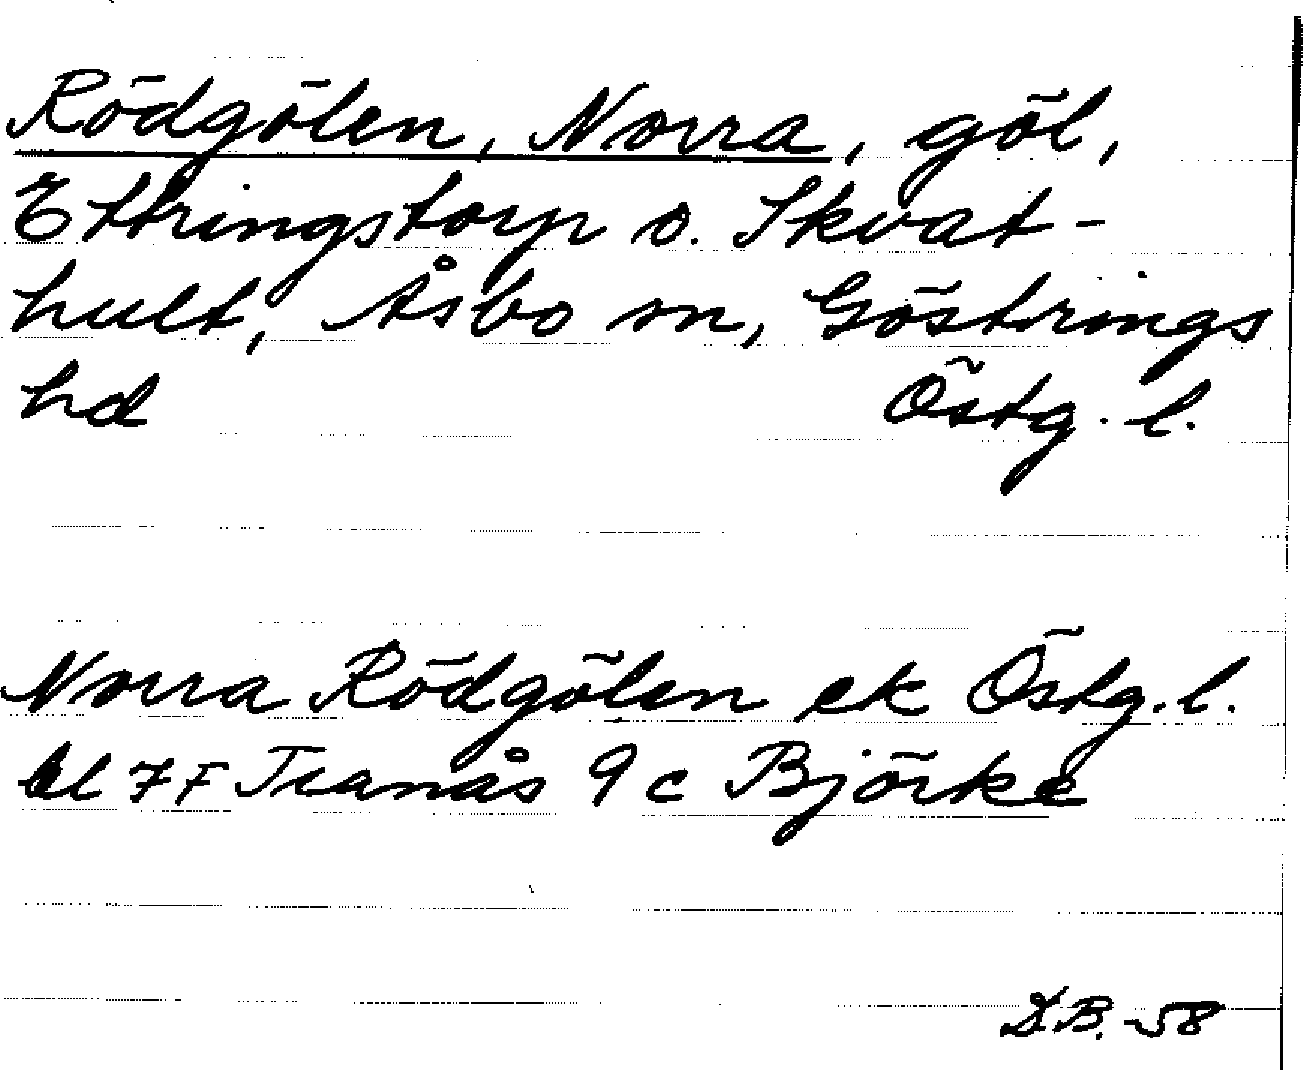 Rödgölen, Norra, göl,
Ettringstorp o. Skvat-
hult, Åsbo sn, Göstrings
hd Östg. l.
Norra Rödgölen ek Östg. l.
bl 7F Tranås 9c Björke
D.B. -58